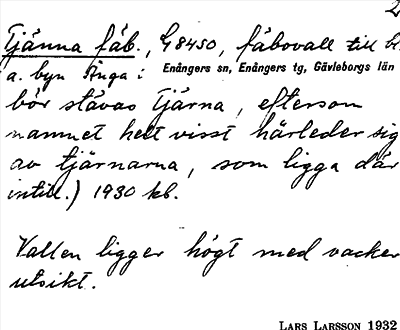 2
Tjänna fäb., G8450, fäbovall till bl.
a. byn Ånga i Enångers sn, Enångers tg, Gävleborgs län
bör stavas Tjärna, eftersom
namnet helt visst härleder sig
av tjärnarna, som ligga där
intill.) 1930 kb.
Vallen ligger högt med vacker
utsikt.
LARS LARSSON 1932